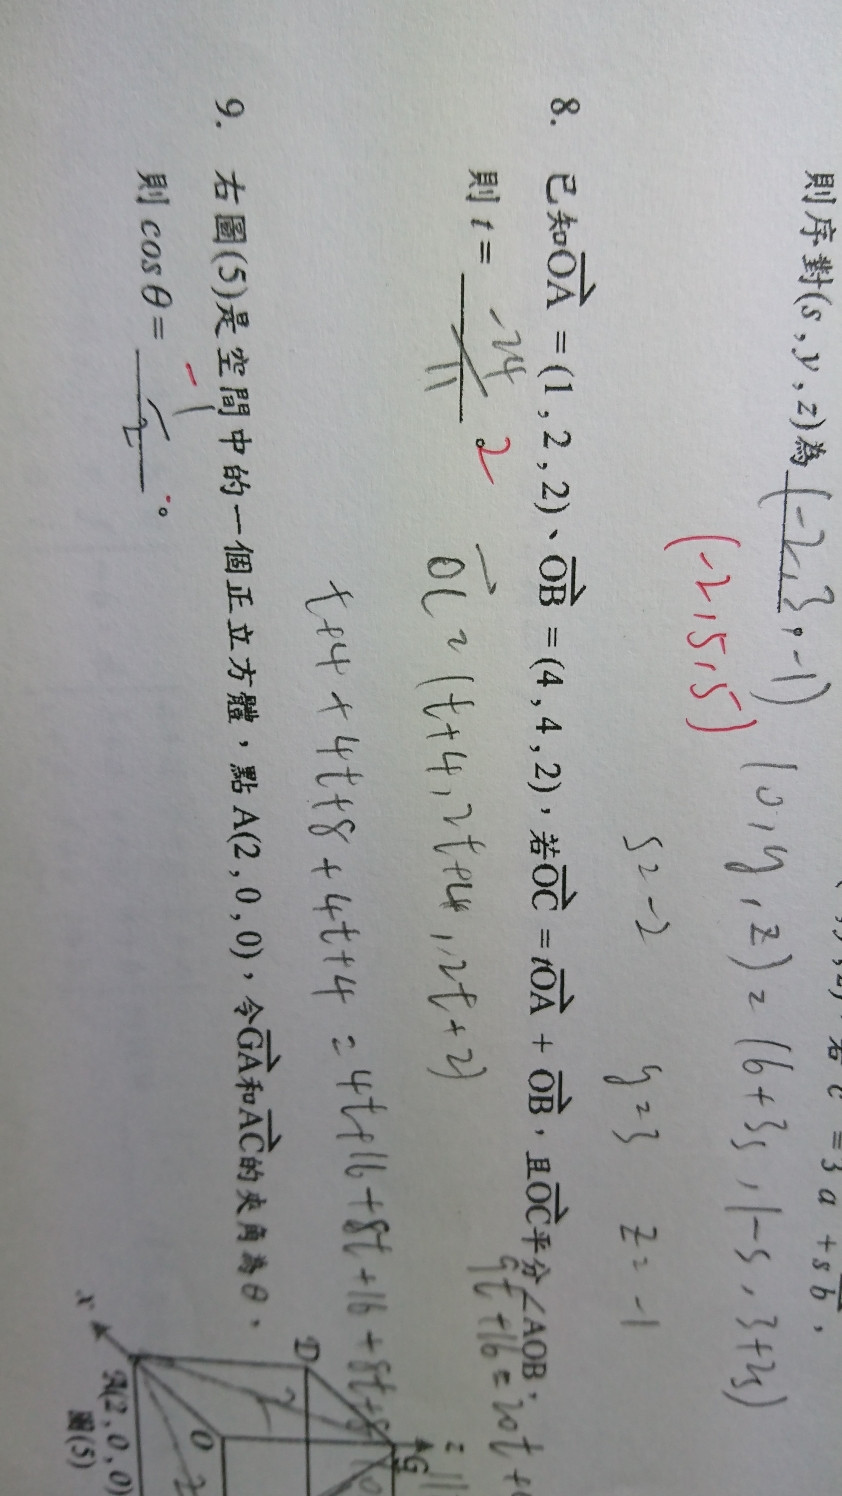 若 c = 3a + sb，
則序對(s , y , z)為 (-2,3,-1)
(-2,5,5)
(0,y,z) = (6+3s, 1-s, 3+2s)
s=-2 y=3 z=-1
8. 已知OA = (1 , 2 , 2)、OB = (4 , 4 , 2)，若OC = tOA + OB，且OC平分∠AOB，
則 t = -24/11 2
OC = (t+4, 2t+4, 2t+2)
9t+16=20t+
= 11
t+4+4t+8+4t+4 = 4t+16+8t+16+8t+8
9. 右圖(5)是空間中的一個正立方體，點 A(2 , 0 , 0)，令GA和AC的夾角為θ，
則 cosθ = -1/2 。
D
G
O
x
A(2, 0, 0)
圖(5)